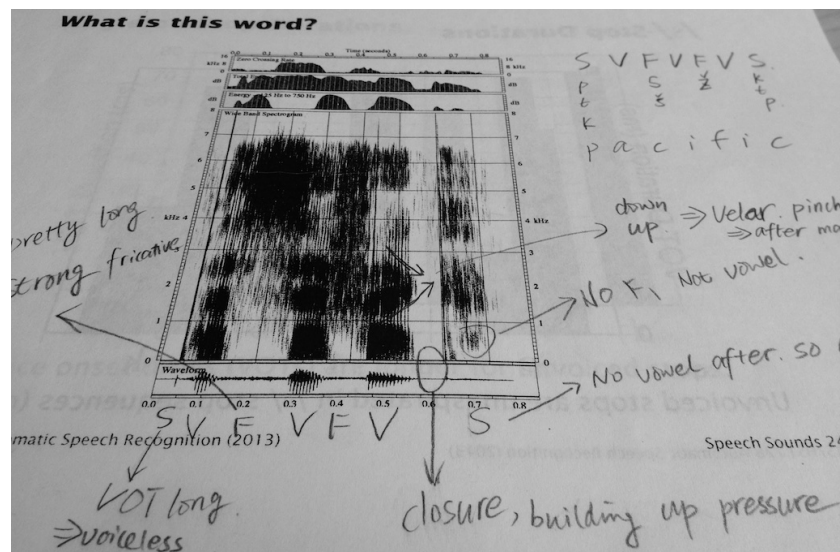 What is this word?
Time (seconds)
0.0 0.1 0.2 0.3 0.4 0.5 0.6 0.7 0.8
16 Zero Crossing Rate 16
kHz 8 8 kHz
0 0
dB dB
dB Energy 125 Hz to 750 Hz dB
Wide Band Spectrogram
7 7
6 6
5 5
kHz 4 4 kHz
3 3
2 2
1 1
0 0
Waveform
0.0 0.1 0.2 0.3 0.4 0.5 0.6 0.7 0.8
S V F V F V S
p s k
t t
k p
p a c i f i c
pretty long
strong fricative
down
up ⇒ Velar. pinch
⇒ after
No F. Not vowel.
No vowel after. so
S V F V F V S
matic Speech Recognition (2013)
Speech Sounds 24
VOT long.
⇒ voiceless
closure, building up pressure